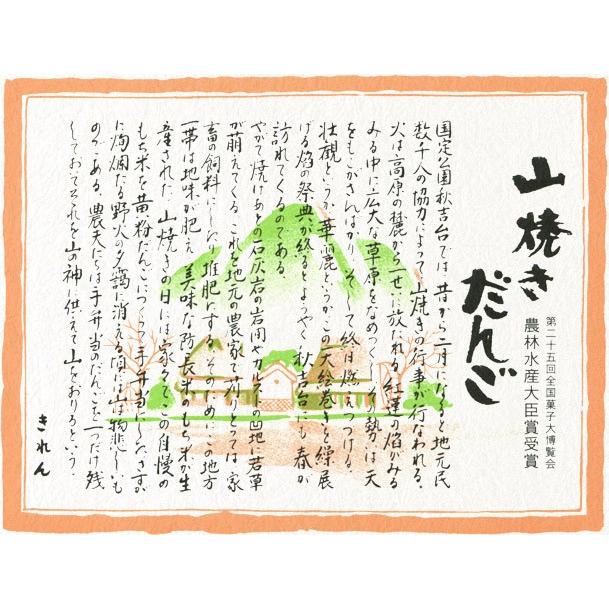 山焼き
だんご
第二十五回全国菓子大博覧会
農林水産大臣賞受賞
国定公園秋吉台では、昔から二月になると地元民
数千人の協力によって、山焼の行事が行なわれる。
火は高原の麓から一せいに放たれる。紅蓮の焔がみる
みる中に広大な草原をなめつくし、その勢は天
をもこがさんばかり、そして終日燃えつづける。
壮観というか華麗というか、この一大絵巻きを繰展
げる焔の祭典が終るとようやく秋吉台にも春が
訪れてくるのである。
やがて焼けあとの石灰岩の岩間やカルストの凹地に若草
が萌えてくる。これを地元の農家で刈りとっては、家
畜の飼料にしたり堆肥にする。そのためにこの地方
一帯は地味が肥え、美味な防長米やもち米が生
産された。山焼きの日には家々で、この自慢の
もち米を黄粉だんごにつくって手弁当にしたさうか
に絢爛たる野火の夕靄に消える頃には山は物悲しいも
のである。農夫たちは手弁当のだんごを一つだけ残
しておいてそれを山の神に供えて山をおりるという。
きれん